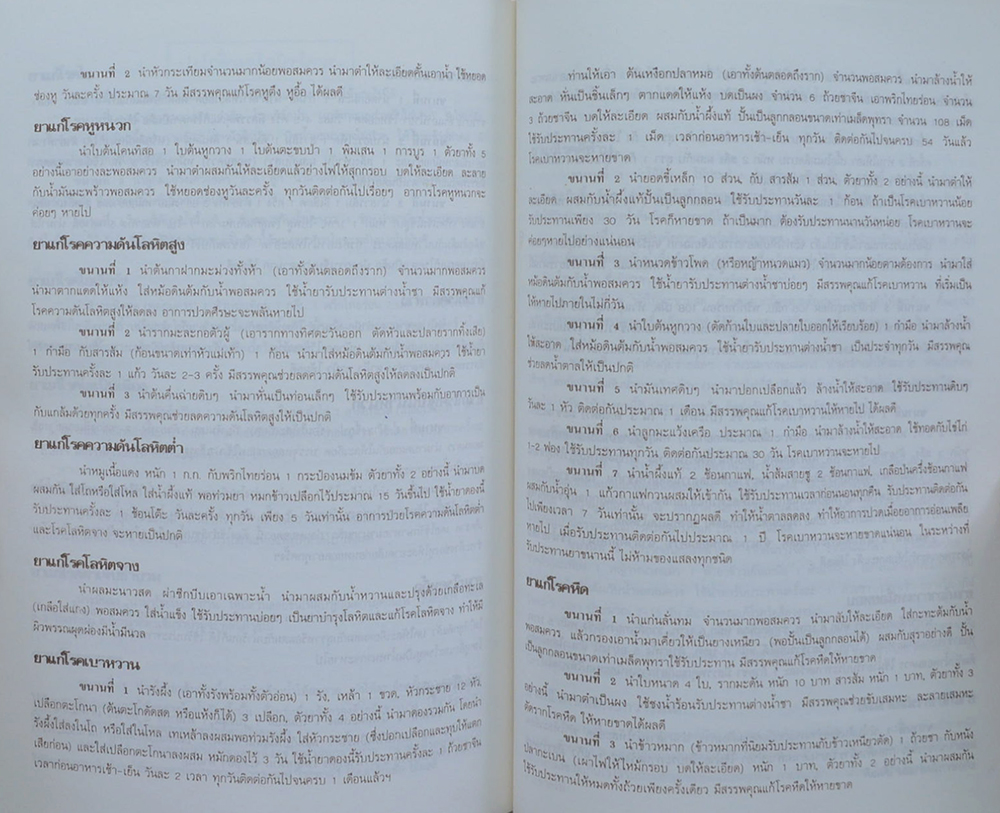 ขนานที่ 2 นำหัวกระเทียมจำนวนมากน้อยพอสมควร นำมาตำให้ละเอียดคั้นเอาน้ำ ใช้หยอด
ช่องหู วันละครั้ง ประมาณ 7 วัน มีสรรพคุณแก้โรคหูตึง หูอื้อ ได้ผลดี
ยาแก้โรคหูหนวก
นำใบต้นโคนทิสอ 1 ใบต้นหูกวาง 1 ใบต้นตะขบป่า 1 พิมเสน 1 การบูร 1 ตัวยาทั้ง 5
อย่างนี้เอาอย่างละพอสมควร นำมาตำผสมกันให้ละเอียดแล้วย่างไฟให้สุกกรอบ บดให้ละเอียด ละลาย
กับน้ำมันมะพร้าวพอสมควร ใช้หยอดช่องหูวันละครั้ง ทุกวันติดต่อกันไปเรื่อยๆ อาการโรคหูหนวกจะ
ค่อยๆ หายไป
ยาแก้โรคความดันโลหิตสูง
ขนานที่ 1 นำต้นกาฝากมะม่วงทั้งห้า (เอาทั้งต้นตลอดถึงราก) จำนวนมากพอสมควร
นำมาตากแดดให้แห้ง ใส่หม้อดินต้มกับน้ำพอสมควร ใช้น้ำยารับประทานต่างน้ำชา มีสรรพคุณแก้
โรคความดันโลหิตสูงให้ลดลง อาการปวดศีรษะจะพลันหายไป
ขนานที่ 2 นำรากมะละกอตัวผู้ (เอารากทางทิศตะวันออก ตัดหัวและปลายรากทิ้งเสีย)
1 กำมือ กับสารส้ม (ก้อนขนาดเท่าหัวแม่เท้า) 1 ก้อน นำมาใส่หม้อดินต้มกับน้ำพอสมควร ใช้น้ำยา
รับประทานครั้งละ 1 แก้ว วันละ 2-3 ครั้ง มีสรรพคุณช่วยลดความดันโลหิตสูงให้ลดลงเป็นปกติ
ขนานที่ 3 นำต้นคื่นฉ่ายดิบๆ นำมาหั่นเป็นท่อนเล็กๆ ใช้รับประทานพร้อมกับอาการเป็น
กับแกล้มด้วยทุกครั้ง มีสรรพคุณช่วยลดความดันโลหิตสูงให้เป็นปกติ
ยาแก้โรคความดันโลหิตต่ำ
นำหมูเนื้อแดง หนัก 1 ก.ก. กับพริกไทยร่อน 1 กระป๋องนมข้น ตัวยาทั้ง 2 อย่างนี้ นำมาบด
ผสมกัน ใส่โถหรือใส่โหล ใส่น้ำผึ้งแท้ พอท่วมยา หมกข้าวเปลือกไว้ประมาณ 15 วันขึ้นไป ใช้น้ำยาดองนี้
รับประทานครั้งละ 1 ช้อนโต๊ะ วันละครั้ง ทุกวัน เพียง 5 วันเท่านั้น อาการป่วยโรคความดันโลหิตต่ำ
และโรคโลหิตจาง จะหายเป็นปกติ
ยาแก้โรคโลหิตจาง
นำผลมะนาวสด ผ่าซีกบีบเอาเฉพาะน้ำ นำมาผสมกับน้ำหวานและปรุงด้วยเกลือทะเล
(เกลือใส่แกง) พอสมควร ใส่น้ำแข็ง ใช้รับประทานบ่อยๆ เป็นยาบำรุงโลหิตและแก้โรคโลหิตจาง ทำให้มี
ผิวพรรณผุดผ่องมีน้ำมีนวล
ยาแก้โรคเบาหวาน
ขนานที่ 1 นำรังผึ้ง (เอาทั้งรังพร้อมทั้งตัวอ่อน) 1 รัง, เหล้า 1 ขวด, หัวกระชาย 12 หัว,
เปลือกตะโกนา (ต้นตะโกดัดสด หรือแห้งก็ได้) 3 เปลือก, ตัวยาทั้ง 4 อย่างนี้ นำมาดองรวมกัน โดยนำ
รังผึ้งใส่ลงในโถ หรือใส่ในโหล เทเหล้าลงผสมพอท่วมรังผึ้ง ใส่หัวกระชาย (ซึ่งปอกเปลือกและทุบให้แตก
เสียก่อน) และใส่เปลือกตะโกนาลงผสม หมักดองไว้ 3 วัน ใช้น้ำยาดองนี้รับประทานครั้งละ 1 ถ้วยชาจีน
เวลาก่อนอาหารเช้า-เย็น วันละ 2 เวลา ทุกวันติดต่อกันไปจนครบ 1 เดือนแล้วฯ
ท่านให้เอา ต้นเหงือกปลาหมอ (เอาทั้งต้นตลอดถึงราก) จำนวนพอสมควร นำมาล้างน้ำให้
สะอาด หั่นเป็นชิ้นเล็กๆ ตากแดดให้แห้ง บดเป็นผง จำนวน 6 ถ้วยชาจีน เอาพริกไทยร่อน จำนวน
3 ถ้วยชาจีน บดให้ละเอียด ผสมกับน้ำผึ้งแท้ ปั้นเป็นลูกกลอนขนาดเท่าเมล็ดพุทรา จำนวน 108 เม็ด
ใช้รับประทานครั้งละ 1 เม็ด เวลาก่อนอาหารเช้า-เย็น ทุกวัน ติดต่อกันไปจนครบ 54 วันแล้ว
โรคเบาหวานจะหายขาด
ขนานที่ 2 นำยอดขี้เหล็ก 10 ส่วน กับ สารส้ม 1 ส่วน ตัวยาทั้ง 2 อย่างนี้ นำมาตำให้
ละเอียด ผสมกับน้ำผึ้งแท้ปั้นเป็นลูกกลอน ใช้รับประทานวันละ 1 ก้อน ถ้าเป็นโรคเบาหวานน้อย
รับประทานเพียง 30 วัน โรคก็หายขาด ถ้าเป็นมาก ต้องรับประทานนานวันหน่อย โรคเบาหวานจะ
ค่อยๆหายไปอย่างแน่นอน
ขนานที่ 3 นำหนวดข้าวโพด (หรือหญ้าหนวดแมว) จำนวนมากน้อยตามต้องการ นำมาใส่
หม้อดินต้มกับน้ำพอสมควร ใช้น้ำยารับประทานต่างน้ำชาบ่อยๆ มีสรรพคุณแก้โรคเบาหวาน ที่เริ่มเป็น
ให้หายไปภายในไม่กี่วัน
ขนานที่ 4 นำใบต้นหูกวาง (ตัดก้านใบและปลายใบออกให้เรียบร้อย) 1 กำมือ นำมาล้างน้ำ
ให้สะอาด ใส่หม้อดินต้มกับน้ำพอสมควร ใช้น้ำยารับประทานต่างน้ำชา เป็นประจำทุกวัน มีสรรพคุณ
ช่วยลดน้ำตาลให้เป็นปกติ
ขนานที่ 5 นำมันเทศดิบๆ นำมาปอกเปลือกแล้ว ล้างน้ำให้สะอาด ใช้รับประทานดิบๆ
วันละ 1 หัว ติดต่อกันประมาณ 1 เดือน มีสรรพคุณแก้โรคเบาหวานให้หายไป ได้ผลดี
ขนานที่ 6 นำลูกมะแว้งเครือ ประมาณ 1 กำมือ นำมาล้างน้ำให้สะอาด ใช้ทอดกับไข่ไก่
1-2 ฟอง ใช้รับประทานทุกวัน ติดต่อกันประมาณ 30 วัน โรคเบาหวานจะหายไป
ขนานที่ 7 นำน้ำผึ้งแท้ 2 ช้อนกาแฟ, น้ำส้มสายชู 2 ช้อนกาแฟ, เกลือป่นครึ่งช้อนกาแฟ
ผสมกับน้ำอุ่น 1 แก้วกาแฟกวนผสมให้เข้ากัน ใช้รับประทานเวลาก่อนนอนทุกคืน รับประทานติดต่อกัน
ไปเพียงเวลา 7 วันเท่านั้น จะปรากฏผลดี ทำให้น้ำตาลลดลง ทำให้อาการปวดเมื่อยอาการอ่อนเพลีย
หายไป เมื่อรับประทานติดต่อกันไปประมาณ 1 ปี โรคเบาหวานจะหายขาดแน่นอน ในระหว่างที่
รับประทานยาขนานนี้ ไม่ห้ามของแสลงทุกชนิด
ยาแก้โรคหืด
ขนานที่ 1 นำแก่นลั่นทม จำนวนมากพอสมควร นำมาสับให้ละเอียด ใส่กะทะต้มกับน้ำ
พอสมควร แล้วกรองเอาน้ำมาเคี่ยวให้เป็นยางเหนียว (พอปั้นเป็นลูกกลอนได้) ผสมกับสุราอย่างดี ปั้น
เป็นลูกกลอนขนาดเท่าเมล็ดพุทราใช้รับประทาน มีสรรพคุณแก้โรคหืดให้หายขาด
ขนานที่ 2 นำใบหนาด 4 ใบ, รากมะดัน หนัก 10 บาท สารส้ม หนัก 1 บาท, ตัวยาทั้ง 3
อย่างนี้ นำมาตำเป็นผง ใช้ชงน้ำร้อนรับประทานต่างน้ำชา มีสรรพคุณช่วยขับเสมหะ ละลายเสมหะ
ตัดรากโรคหืด ให้หายขาดได้ผลดี
ขนานที่ 3 นำข้าวหมาก (ข้าวหมากที่นิยมรับประทานกับข้าวเหนียวตัด) 1 ถ้วยชา กับหนัง
ปลากะเบน (เผาไฟให้ไหม้กรอบ บดให้ละเอียด) หนัก 1 บาท, ตัวยาทั้ง 2 อย่างนี้ นำมาผสมกัน
ใช้รับประทานให้หมดทั้งถ้วยเพียงครั้งเดียว มีสรรพคุณแก้โรคหืดให้หายขาด